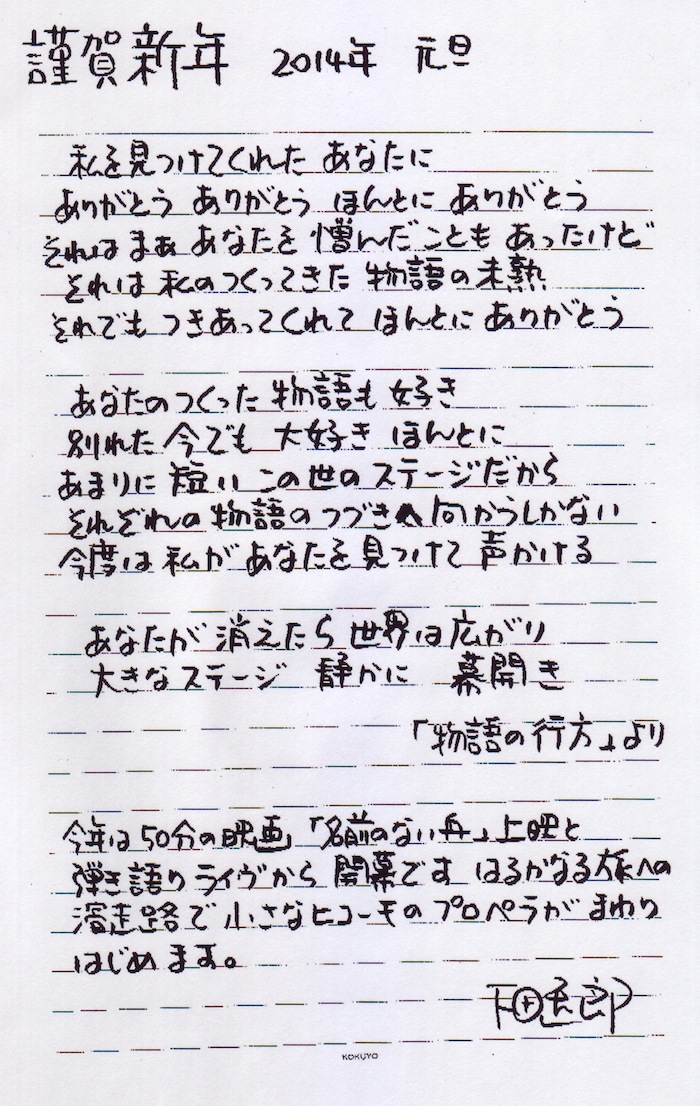 謹賀新年 2014年 元旦
私を見つけてくれた あなたに
ありがとう ありがとう ほんとに ありがとう
それは まぁ あなたを 憎んだ ことも あったけど
それは 私のつくってきた 物語の未熟
それでも つきあってくれて ほんとに ありがとう
あなたのつくった 物語も 好き
別れた 今でも 大好き ほんとに
あまりに 短い この世の ステージだから
それぞれの 物語の つづきへ 向かうしかない
今度は 私が あなたを 見つけて 声かける
あなたが 消えたら 世界は 広がり
大きなステージ 静かに 幕開き
「物語の行方」より
今年は 50分の映画 「名前のない舟」上映と
弾き語り ライヴから 開幕です はるかなる 旅への
滑走路で 小さなヒコーキの プロペラが まわり
はじめます。
下田逸郎
KOKUYO